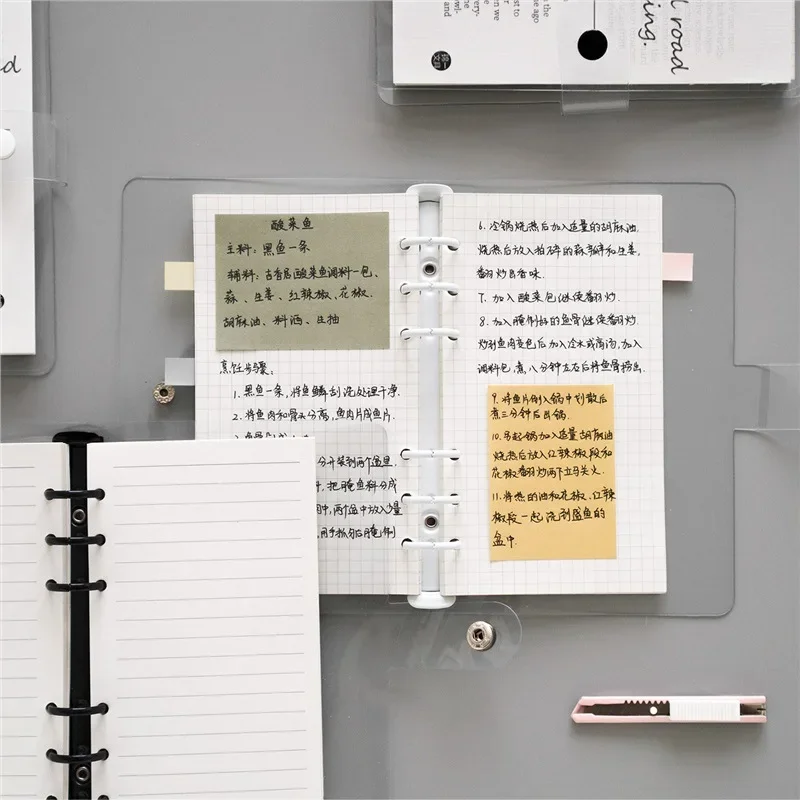 酸菜鱼
主料：黑鱼一条
辅料：古香居酸菜鱼调料一包、
蒜、生姜、红辣椒、花椒、
胡麻油、料酒、生抽
烹饪步骤：
1. 黑鱼一条，将鱼鳞刮洗处理干净.
2. 将鱼肉和骨头分离，鱼肉片成鱼片.
分开装到两个盘里.
把腌鱼料分成
两个盘中放入少量
用手抓匀后腌制
6. 冷锅烧热后加入适量的胡麻油.
烧热后放入拍碎的蒜瓣和生姜，
翻炒出香味.
7. 加入酸菜包继续翻炒.
8. 加入腌制好的鱼骨继续翻炒
炒到鱼肉变色后加入冷水或高汤，加入
调料包，煮八分钟左右后将鱼骨捞出.
9. 将鱼片倒入锅中划散后
煮三分钟后出锅.
10. 另起锅加入适量胡麻油
烧热后放入红辣椒段和
花椒翻炒两下立马关火.
11. 将热的油和花椒、红辣
椒段一起浇到盛鱼的
盆中.
road
ing.